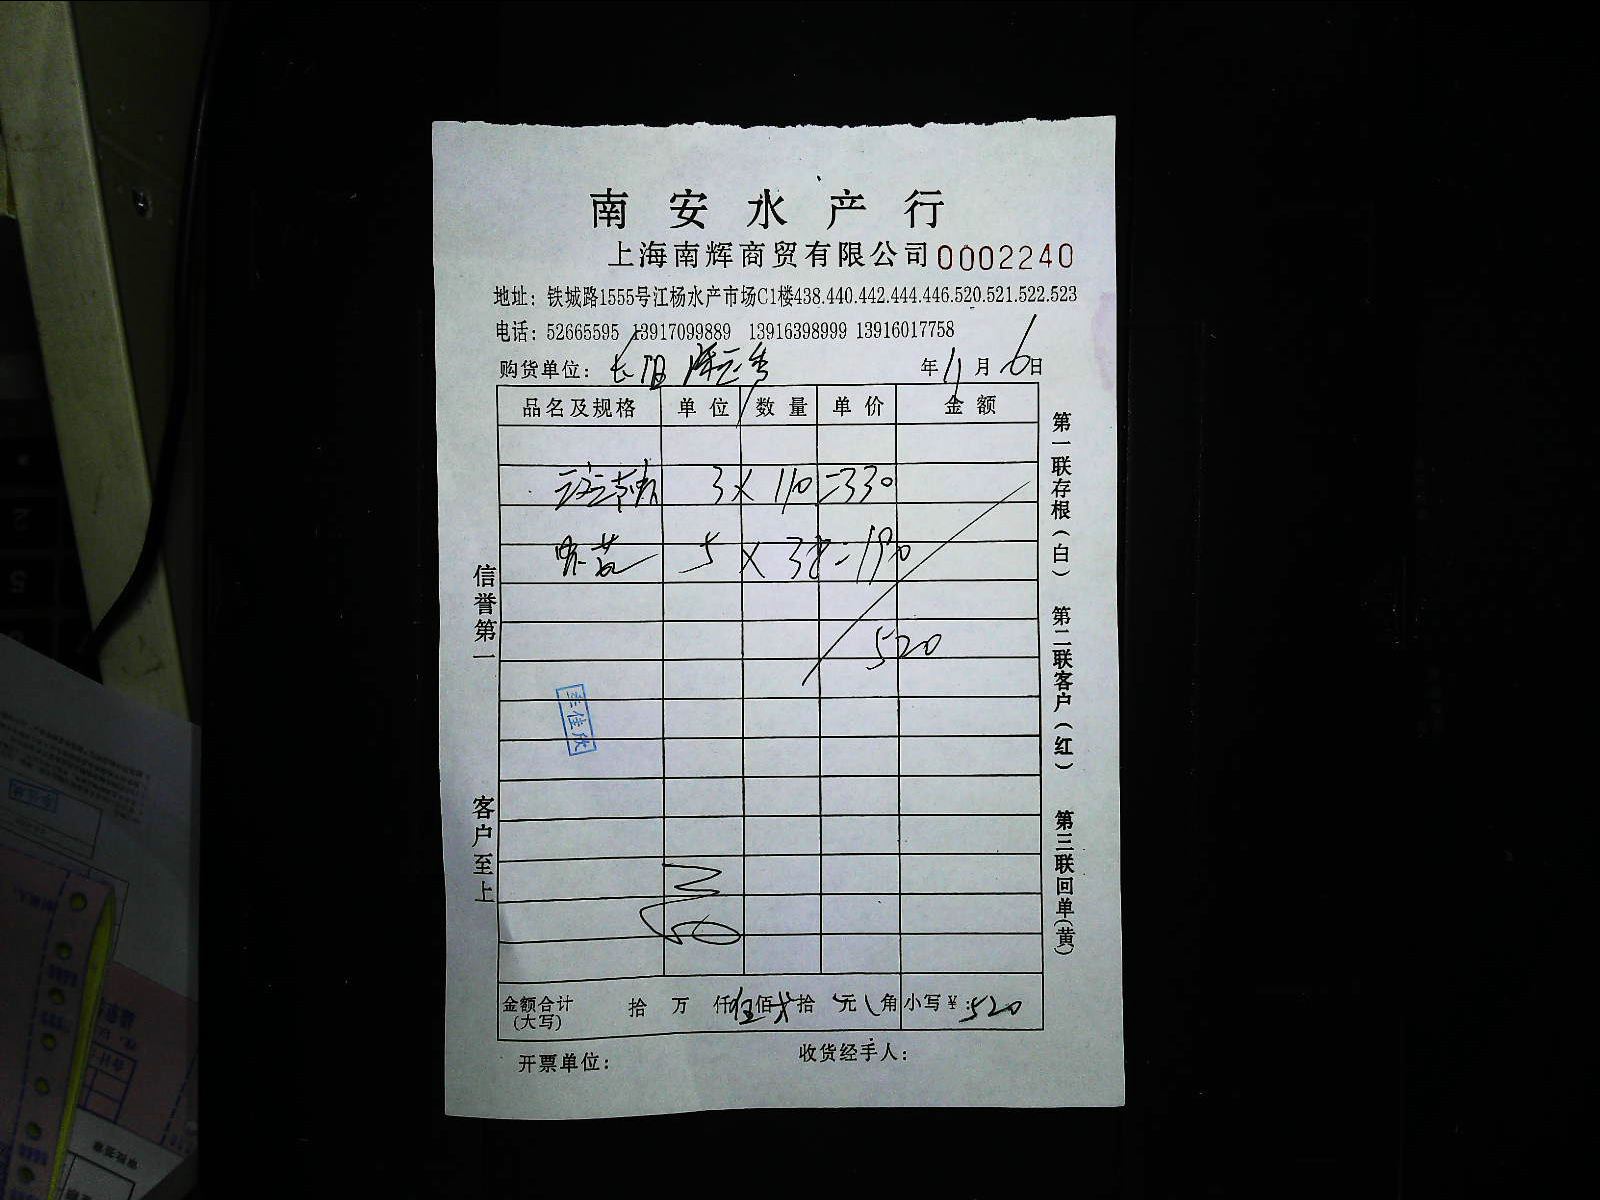 南安水产行
上海南辉商贸有限公司 0002240
地址：铁城路1555号江杨水产市场C1楼438.440.442.444.446.520.521.522.523
电话：52665595 13917099889 13916398999 13916017758
购货单位： 年11月6日
品名及规格 单位 数量 单价 金额
3 × 110 =330
5 × 38 =190
520
佳欣
金额合计(大写) 拾 万 仟伍佰贰拾 元 角 小写￥:520
开票单位： 收货经手人：
信誉第一
客户至上
第一联存根(白)
第二联客户(红)
第三联回单(黄)